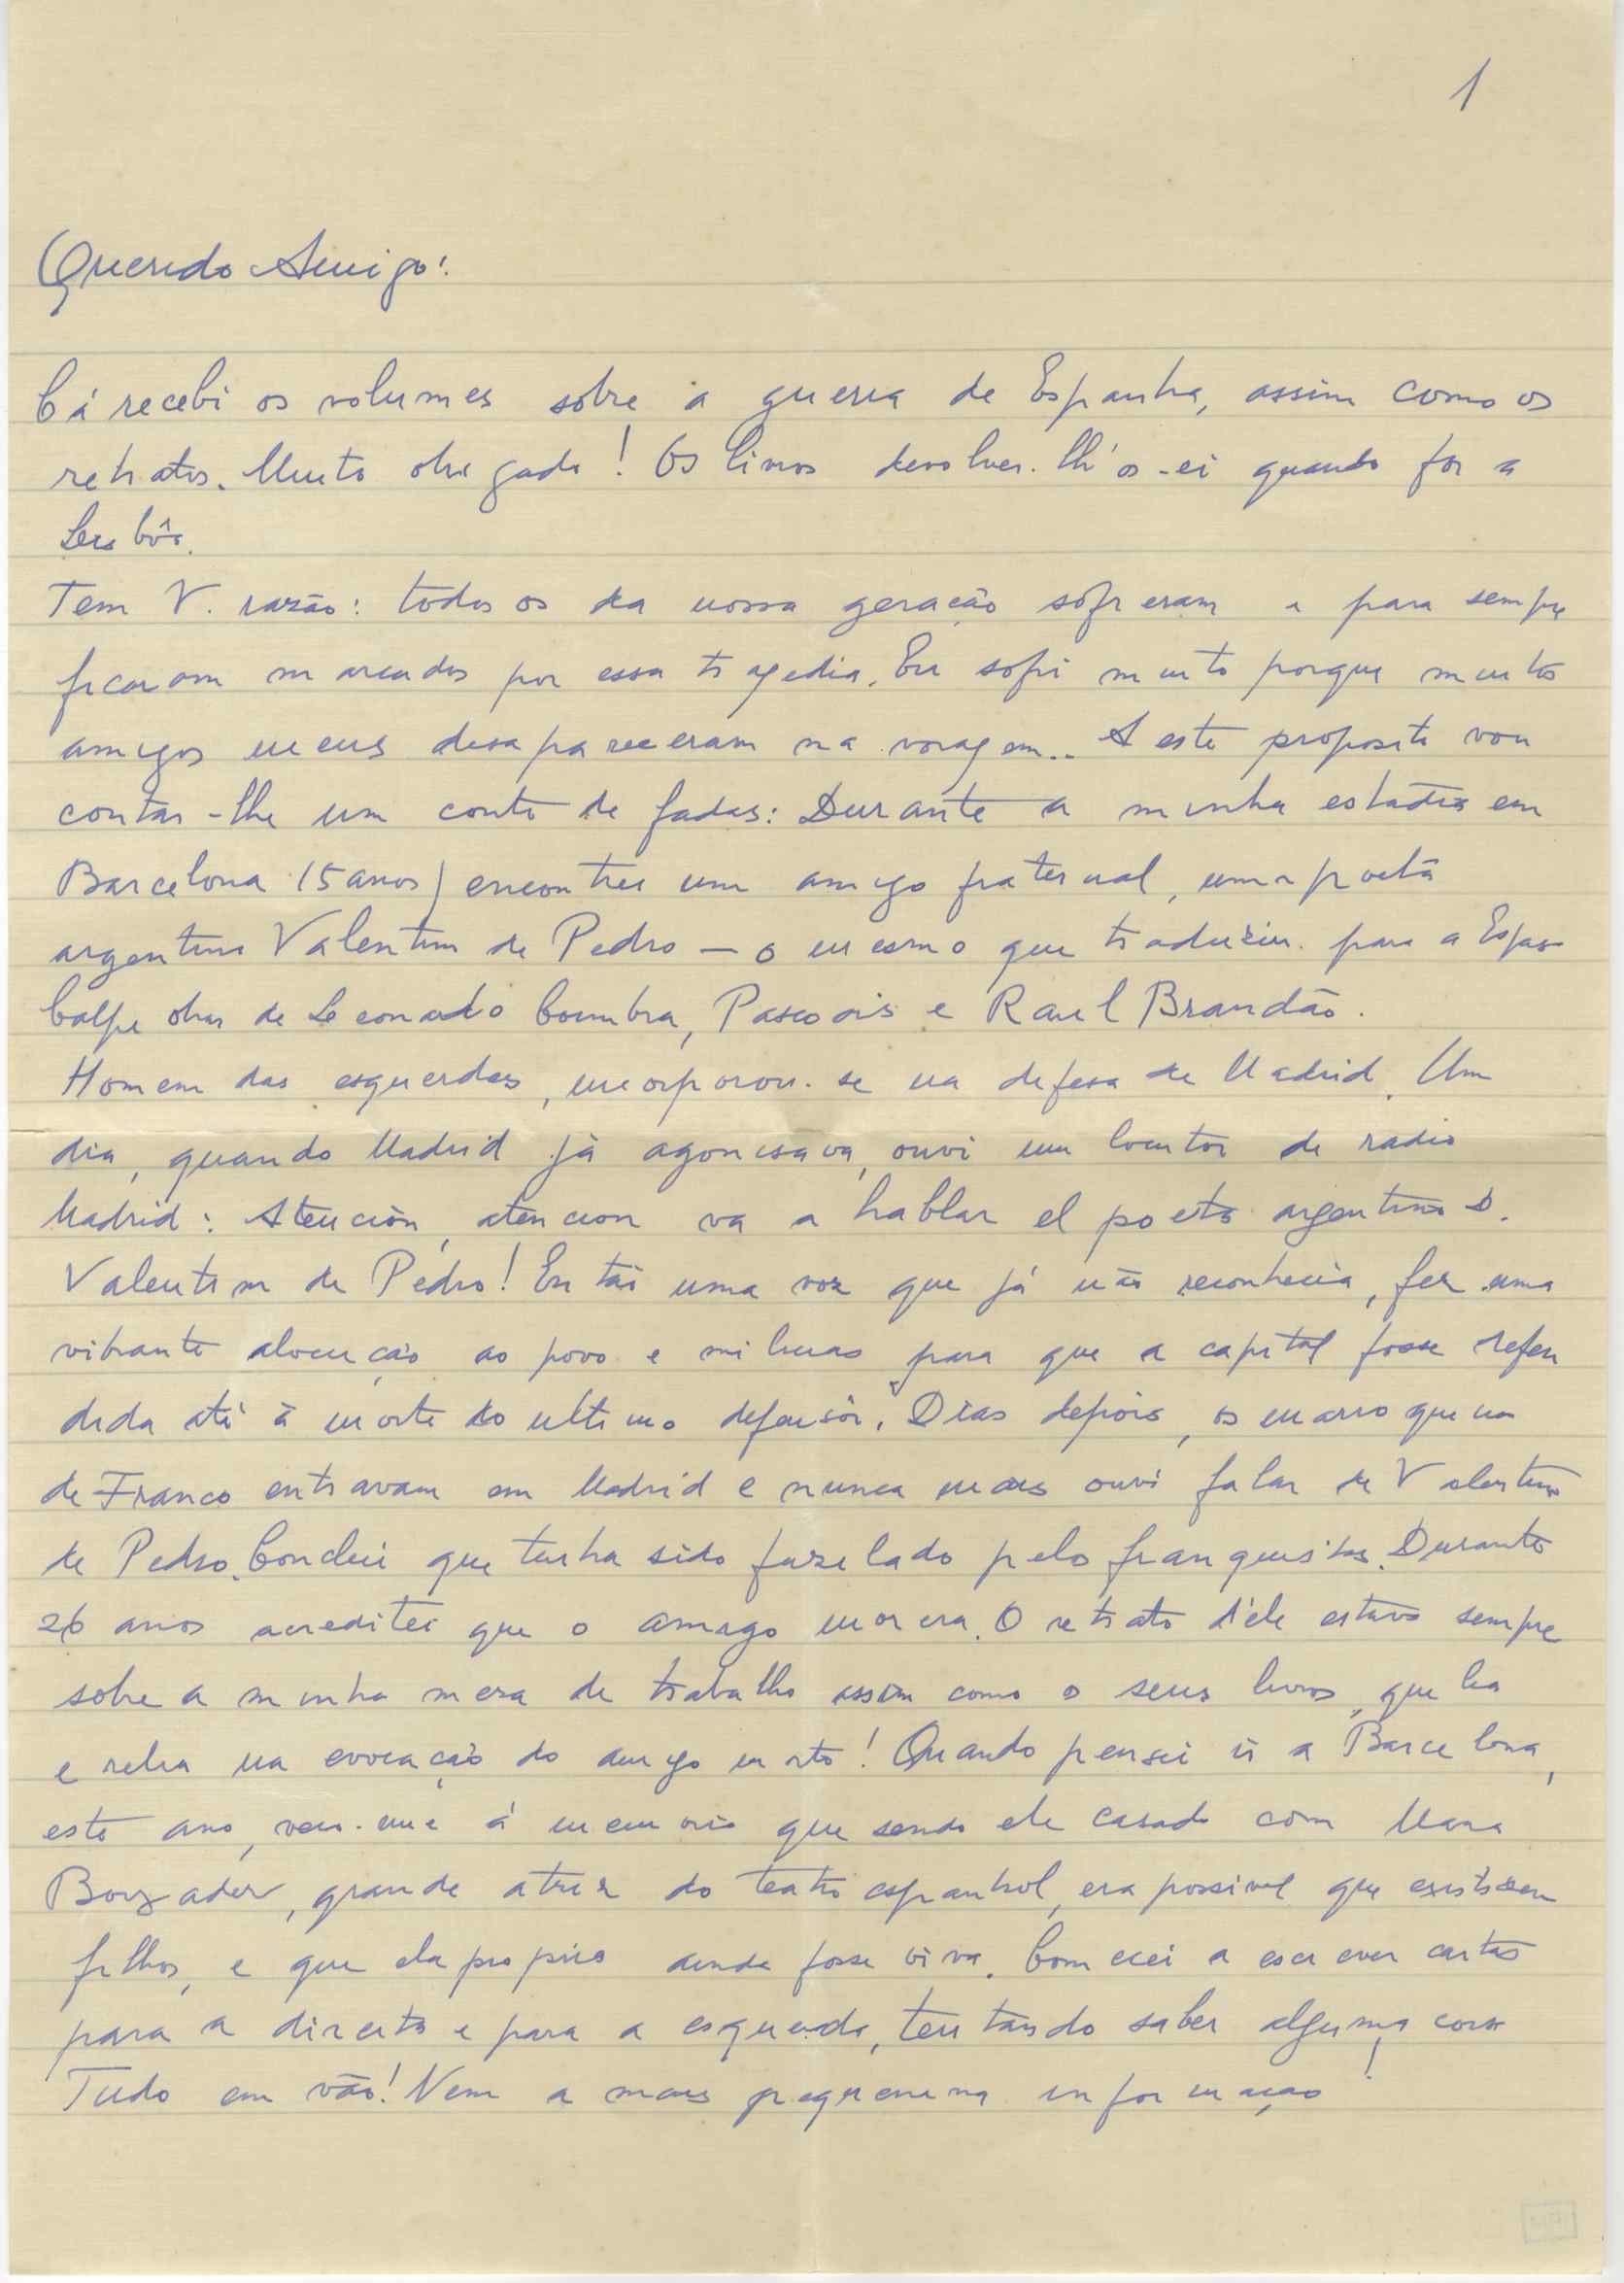 1
Querido Amigo!
Cá recebi os volumes sobre a guerra de Espanha, assim como os
retratos. Muito obrigado! Os livros devolver-lh'os-ei quando for a
Lisbôa.
Tem V. razão: todos os da nossa geração sofreram e para sempre
ficaram marcados por essa tragedia. Eu sofri muito porque muitos
amigos meus desapareceram na voragem.. A este proposito vou
contar-lhe um conto de fadas: Durante a minha estadia em
Barcelona (5 anos) encontrei um amigo fraternal, um poeta
argentino Valentim de Pedro — o mesmo que traduziu para a Espasa
Calpe obras de Leonardo Coimbra, Pascoais e Raul Brandão.
Homem das esquerdas, incorporou-se na defesa de Madrid. Um
dia, quando Madrid já agonisava, ouvi um locutor de radio
Madrid: Atención, atencion va a hablar el poeta argentino D.
Valentim de Pedro! Então uma voz que já não reconhecia, fez uma
vibrante alocução ao povo e milicias para que a capital fosse defen
dida até à morte do ultimo defensor. Dias depois, os marroquinos
de Franco entravam em Madrid e nunca mais ouvi falar de Valentim
de Pedro. Conclui que tinha sido fuzelado pelo franquistas. Durante
26 anos acreditei que o amigo morrera. O retrato d'ele estava sempre
sobre a minha mesa de trabalho assim como o seus livros, que lia
e relia na evocação do amigo morto! Quando pensei ir a Barcelona,
este ano, veio-me á memoria que sendo ele casado com Maria
grande atriz do teatro espanhol, era possivel que existissem
filhos, e que ela propria ainda fosse viva. Comecei a escrever cartas
para a direita e para a esquerda, tentando saber alguma coisa
Tudo em vão! Nem a mais pequenina informação!